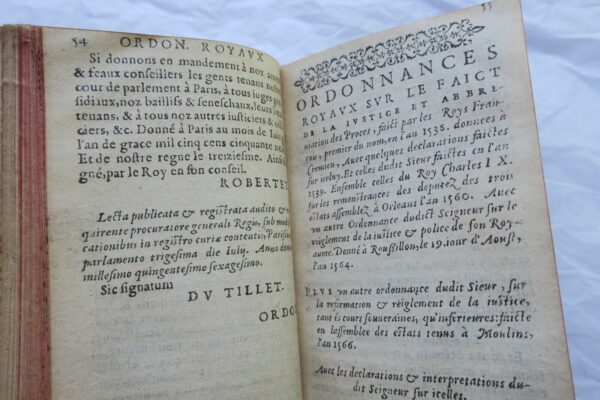 54 ORDON. ROYAVX
Si donnons en mandement à noz amez
& feaux conseillers les gents tenans nostre
cour de parlement à Paris, à tous iuges presidiaux,
noz baillifs & seneschaux, leurs
tenans, & à tous noz autres iusticiers & officiers,
&c. Donné à Paris au mois de
l'an de grace mil cinq cens cinquante
Et de nostre regne le treziesme. Ainsi
gné, par le Roy en son conseil.
ROBERTET
Lecta publicata & registrata audito &
quirente procuratore generali Regis, sub modi
cationibus in registro curiæ contentis, Parisiis
parlamento trigesima die Iuly. Anno domi
millesimo quingentesimo sexagesimo.
Sic signatum
DV TILLET.
ORDO
55
ORDONNANCES
ROYAVX SVR LE FAICT
DE LA IVSTICE ET ABBRE-
uiation des Proces, faict par les Roys Fran-
çou, premier du nom, en l'an 1535. données à
Cremieu, Auec quelques declarations faictes
sur iceluy. Et celles dudict Sieur faictes en l'an
1539. Ensemble celles du Roy Charles IX.
sur les remonstrances des deputez des trois
estats assemblez à Orleans l'an 1560. Auec
vn autre Ordonnance dudict Seigneur sur le
reiglement de la iustice & police de son Roy-
aume. Donné à Roussillon, le 19. iour d'Aoust,
l'an 1564.
PLVS vn autre ordonnance dudit Sieur, sur
la reformation & reiglement de la iustice,
tant és cours souueraines, qu'inferieures: faicte
en l'assemblee des estats tenus à Moulins,
l'an 1566.
Auec les declarations & interpretations du-
dit Seigneur sur icelles.